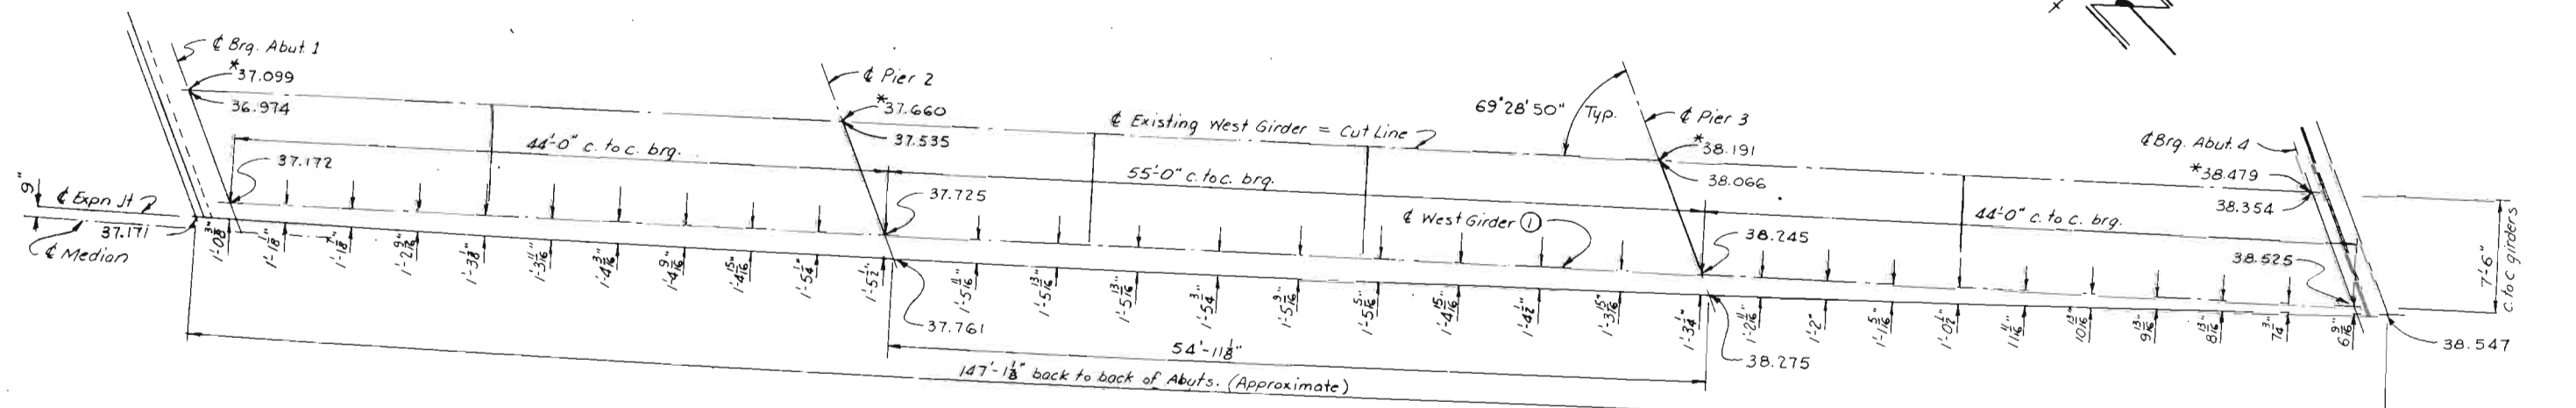 ℄ Brg. Abut. 1
*37.099
36.974
℄ Pier 2
*37.660
37.535
℄ Existing West Girder = Cut Line
69°28'50" Typ.
℄ Pier 3
*38.191
38.066
℄ Brg. Abut. 4
*38.479
38.354
44'-0" c. to c. brg.
37.172
37.725
55'-0" c. to c. brg.
℄ West Girder ①
38.245
44'-0" c. to c. brg.
38.525
7'-6"
c. to c girders
9"
℄ Expn Jt
37.171
℄ Median
1'-0 3/8"
1'-1 1/8"
1'-1 7/8"
1'-2 9/16"
1'-3 1/8"
1'-3 11/16"
1'-4 3/16"
1'-4 9/16"
1'-4 15/16"
1'-5 1/4"
1'-5 1/2"
1'-5 11/16"
1'-5 13/16"
1'-5 13/16"
1'-5 3/4"
1'-5 9/16"
1'-5 5/16"
1'-4 15/16"
1'-4 1/2"
1'-3 15/16"
1'-3 1/4"
1'-2 11/16"
1'-2"
1'-1 5/16"
1'-0 1/2"
11 11/16"
10 13/16"
9 13/16"
8 13/16"
7 3/4"
6 9/16"
37.761
54'-11 1/8"
38.275
38.547
147'-1 1/8" back to back of Abuts. (Approximate)